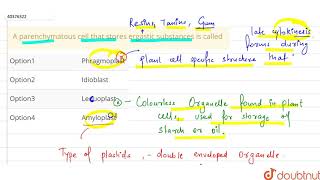 40376322
Resins, Tanins, Gum
A parenchymatous cell that stores ergastic substances is called
late cytokinesis
forms during
Option1 Phragmoplast
plant cell specific structure that
Option2 Idioblast
Option3 Leucoplast
Colourless Organelle found in plant
Option4 Amyloplast
cells, used for storage of
starch or oil.
Type of plastids, - double enveloped organelle
doubtnut